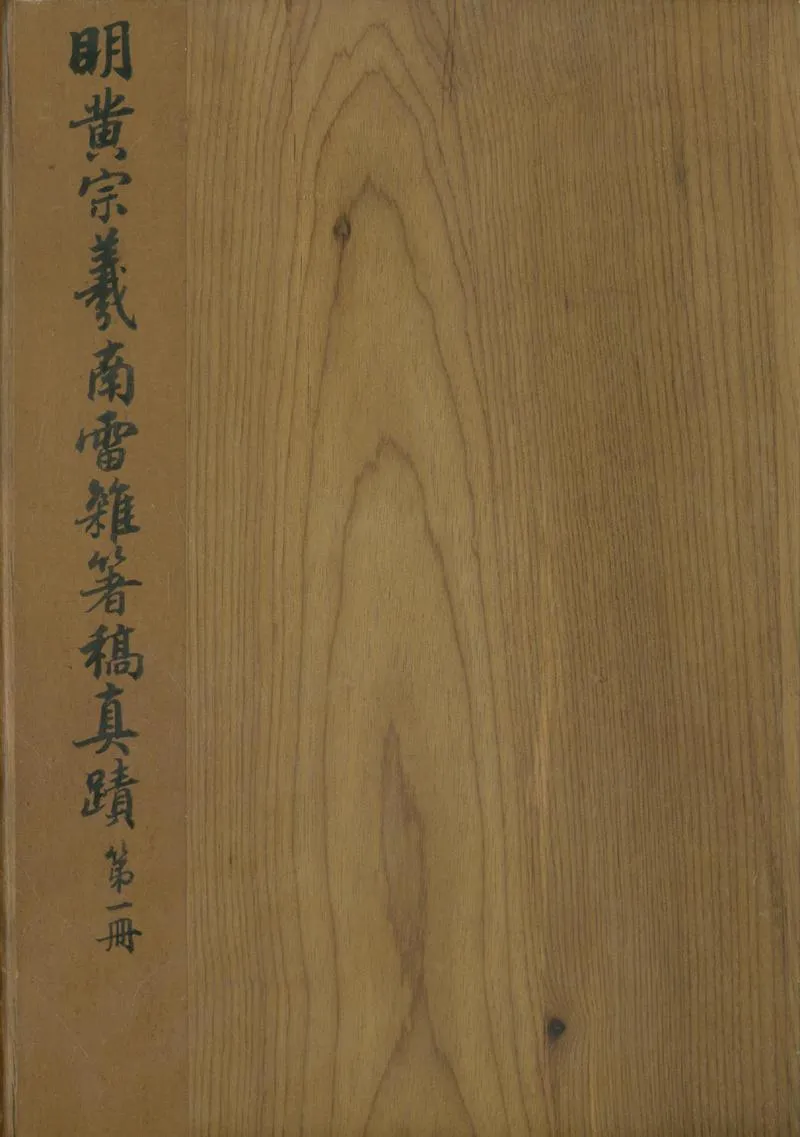 明黄宗羲南雷雜箸稿真蹟 第一冊